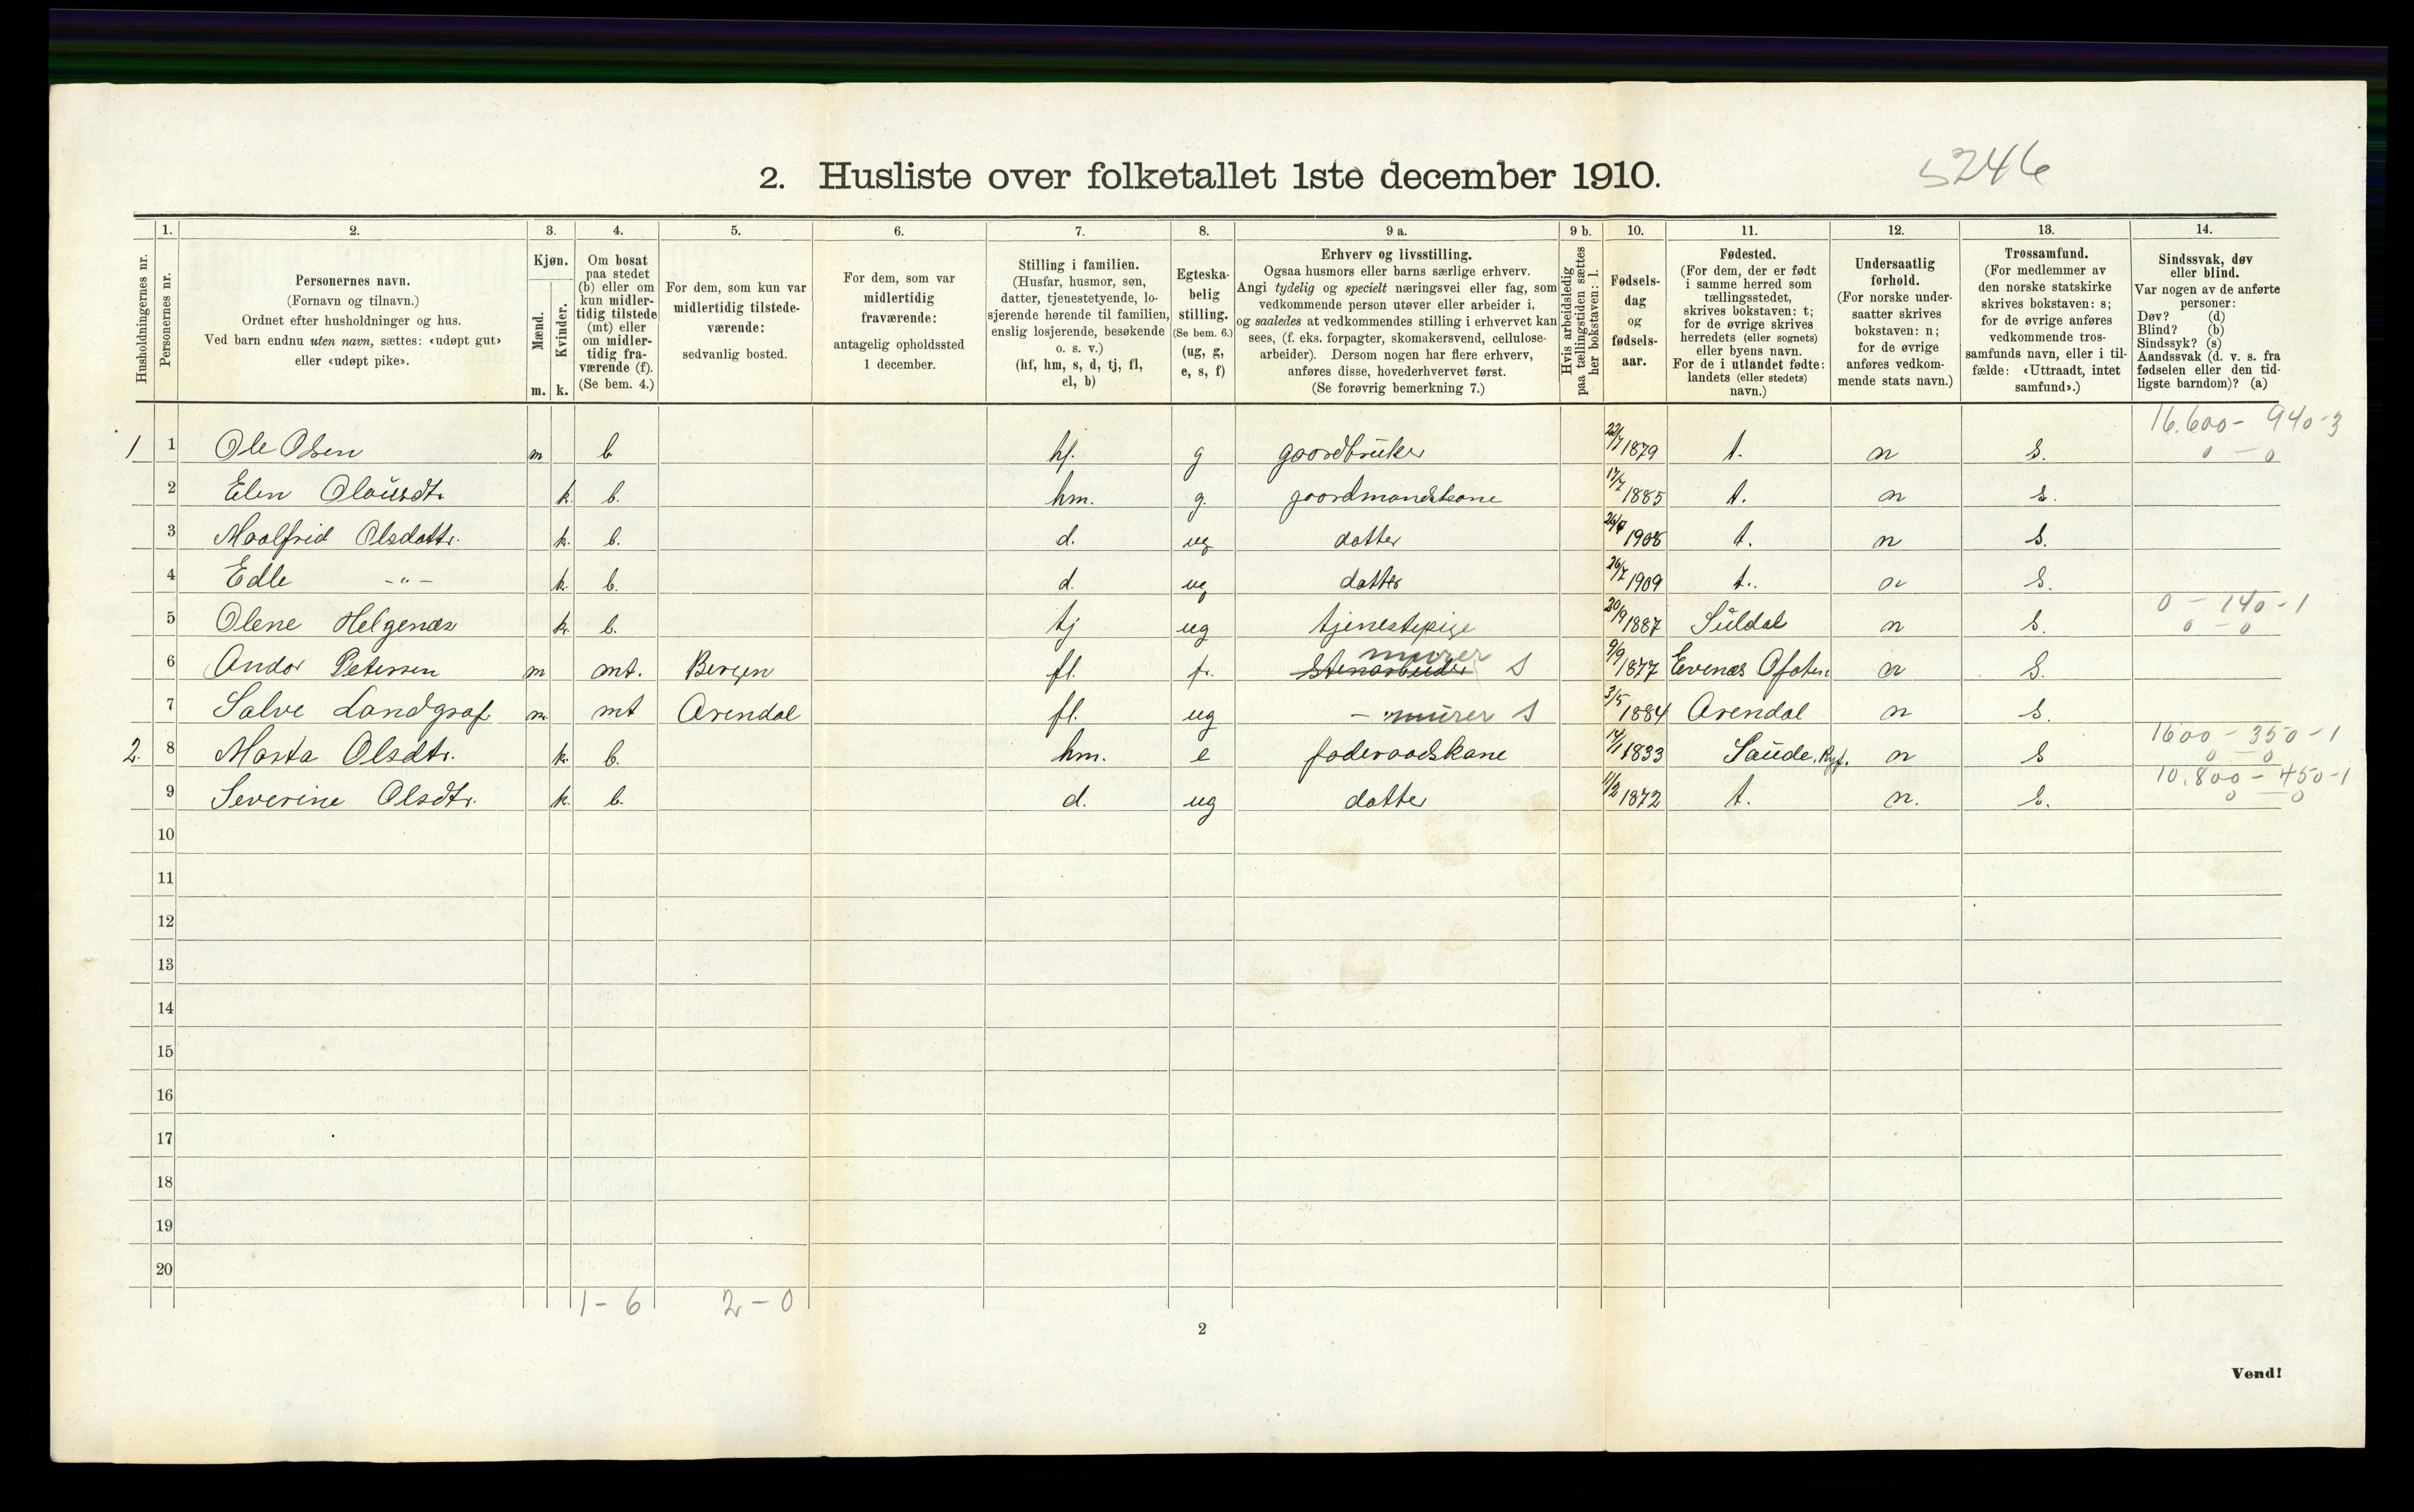 5246
2. Husliste over folketallet 1ste december 1910.
Husholdningernes nr.
1.
Personernes nr.
2.
Personernes navn.
(Fornavn og tilnavn.)
Ordnet efter husholdninger og hus.
Ved barn endnu uten navn, sættes: «udøpt gut»
eller «udøpt pike».
3.
Kjøn.
Mænd.
Kvinder.
m. k.
4.
Om bosat
paa stedet
(b) eller om
kun midler-
tidig tilstede
(mt) eller
om midler-
tidig fra-
værende (f).
(Se bem. 4.)
5.
For dem, som kun var
midlertidig tilstede-
værende:
sedvanlig bosted.
6.
For dem, som var
midlertidig
fraværende:
antagelig opholdssted
1 december.
7.
Stilling i familien.
(Husfar, husmor, søn,
datter, tjenestetyende, lo-
sjerende hørende til familien,
enslig losjerende, besøkende
o. s. v.)
(hf, hm, s, d, tj, fl,
el, b)
8.
Egteska-
belig
stilling.
(Se bem. 6.)
(ug, g,
e, s, f)
9 a.
Erhverv og livsstilling.
Ogsaa husmors eller barns særlige erhverv.
Angi tydelig og specielt næringsvei eller fag, som
vedkommende person utøver eller arbeider i,
og saaledes at vedkommendes stilling i erhvervet kan
sees, (f. eks. forpagter, skomakersvend, cellulose-
arbeider). Dersom nogen har flere erhverv,
anføres disse, hovederhvervet først.
(Se forøvrig bemerkning 7.)
9 b.
Hvis arbeidsledig
paa tællingstiden sættes
her bokstaven: l.
10.
Fødsels-
dag
og
fødsels-
aar.
11.
Fødested.
(For dem, der er født
i samme herred som
tællingsstedet,
skrives bokstaven: t;
for de øvrige skrives
herredets (eller sognets)
eller byens navn.
For de i utlandet fødte:
landets (eller stedets)
navn.)
12.
Undersaatlig
forhold.
(For norske under-
saatter skrives
bokstaven: n;
for de øvrige
anføres vedkom-
mende stats navn.)
13.
Trossamfund.
(For medlemmer av
den norske statskirke
skrives bokstaven: s;
for de øvrige anføres
vedkommende tros-
samfunds navn, eller i til-
fælde: «Uttraadt, intet
samfund».)
14.
Sindssvak, døv
eller blind.
Var nogen av de anførte
personer:
Døv? (d)
Blind? (b)
Sindssyk? (s)
Aandssvak (d. v. s. fra
fødselen eller den tid-
ligste barndom)? (a)
16.600 - 940-3
1 1 Ole Olsen m b hf. g gaardbruker 22/7 1879 t. n s. 0 - 0
2 Elen Olausdt. k. b. hm. g. gaardmandskone 17/7 1885 t. n s.
3 Maalfrid Olsdattr. k. b. d. ug datter 1908 t. n s.
4 Edle -"- k. b. d. ug datter 26/7 1909 t.. n s.
0 - 140-1
5 Olene Helgenæs k. b. tj ug tjenestepige 20/9 1887 Suldal n s. 0 - 0
murer
6 Andor Petersen m mt. Bergen fl. fr. stenarbeider S 9/9 1877 Evenæs Ofoten n s.
7 Salve Landgraf m mt Arendal fl. ug - murer S 3/5 1884 Arendal n s.
1600 - 350-1
2. 8 Marta Olsdtr. k. b. hm. e foderaadskone 14/1 1833 Saude, Ryf. n s 0 - 0
10.800 - 450-1
9 Severine Olsdtr. k. b. d. ug datter 11/2 1872 t. n. s. 0 - 0
10
11
12
13
14
15
16
17
18
19
20
1 - 6 2 - 0
2
Vend!